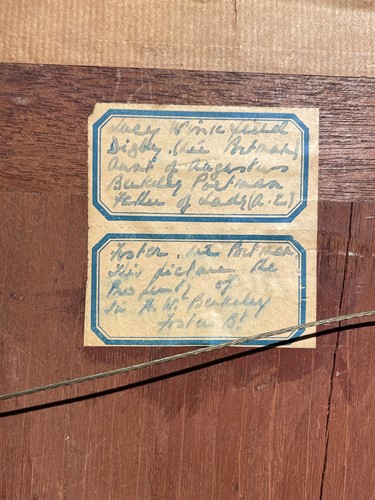 Lucy Wingfield
Digby. (née Portman)
Aunt of Augustus
Berkeley Portman
Father of Lady (A.E.)
Foster. née Portman.
This picture the
Property of
Sir H. W. Berkeley
Foster Bt.